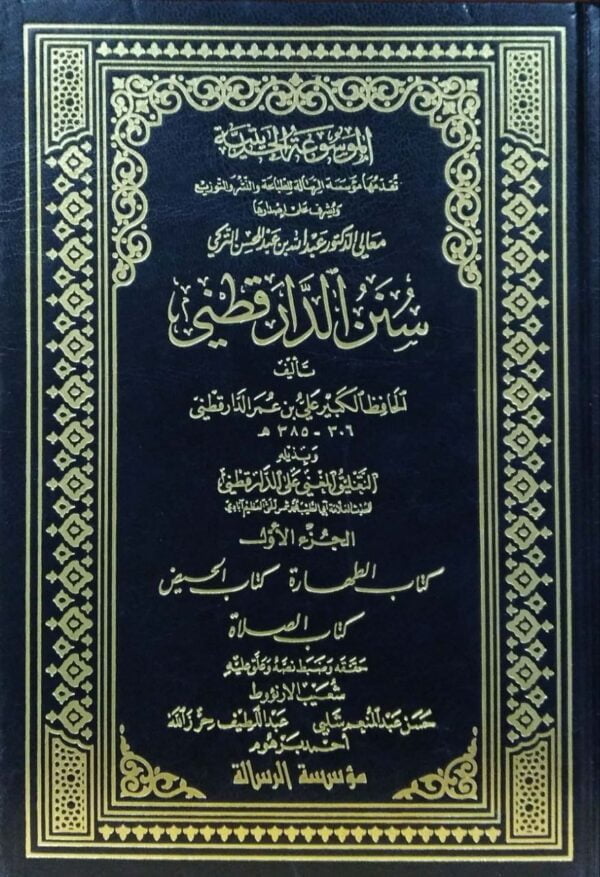 الموسوعة الحديثية
تقدمها مؤسسة الرسالة للطباعة والنشر والتوزيع
ويشرف على إصدارها
معالي الدكتور عبد الله بن عبد المحسن التركي
سُنَنُ الدَّارَقُطْنِي
تأليف
الحافظ الكبير علي بن عمر الدارقطني
٣٠٦ - ٣٨٥ هـ
وبذيله
التعليق المغني على الدارقطني
للمحدث العلامة أبي الطيب محمد شمس الحق العظيم آبادي
الجزء الأول
كتاب الطهارة كتاب الحيض
كتاب الصلاة
حققه وضبط نصه وعلق عليه
شعيب الارنؤوط
حسن عبد المنعم شلبي عبد اللطيف حرز الله
أحمد برهوم
مؤسسة الرسالة